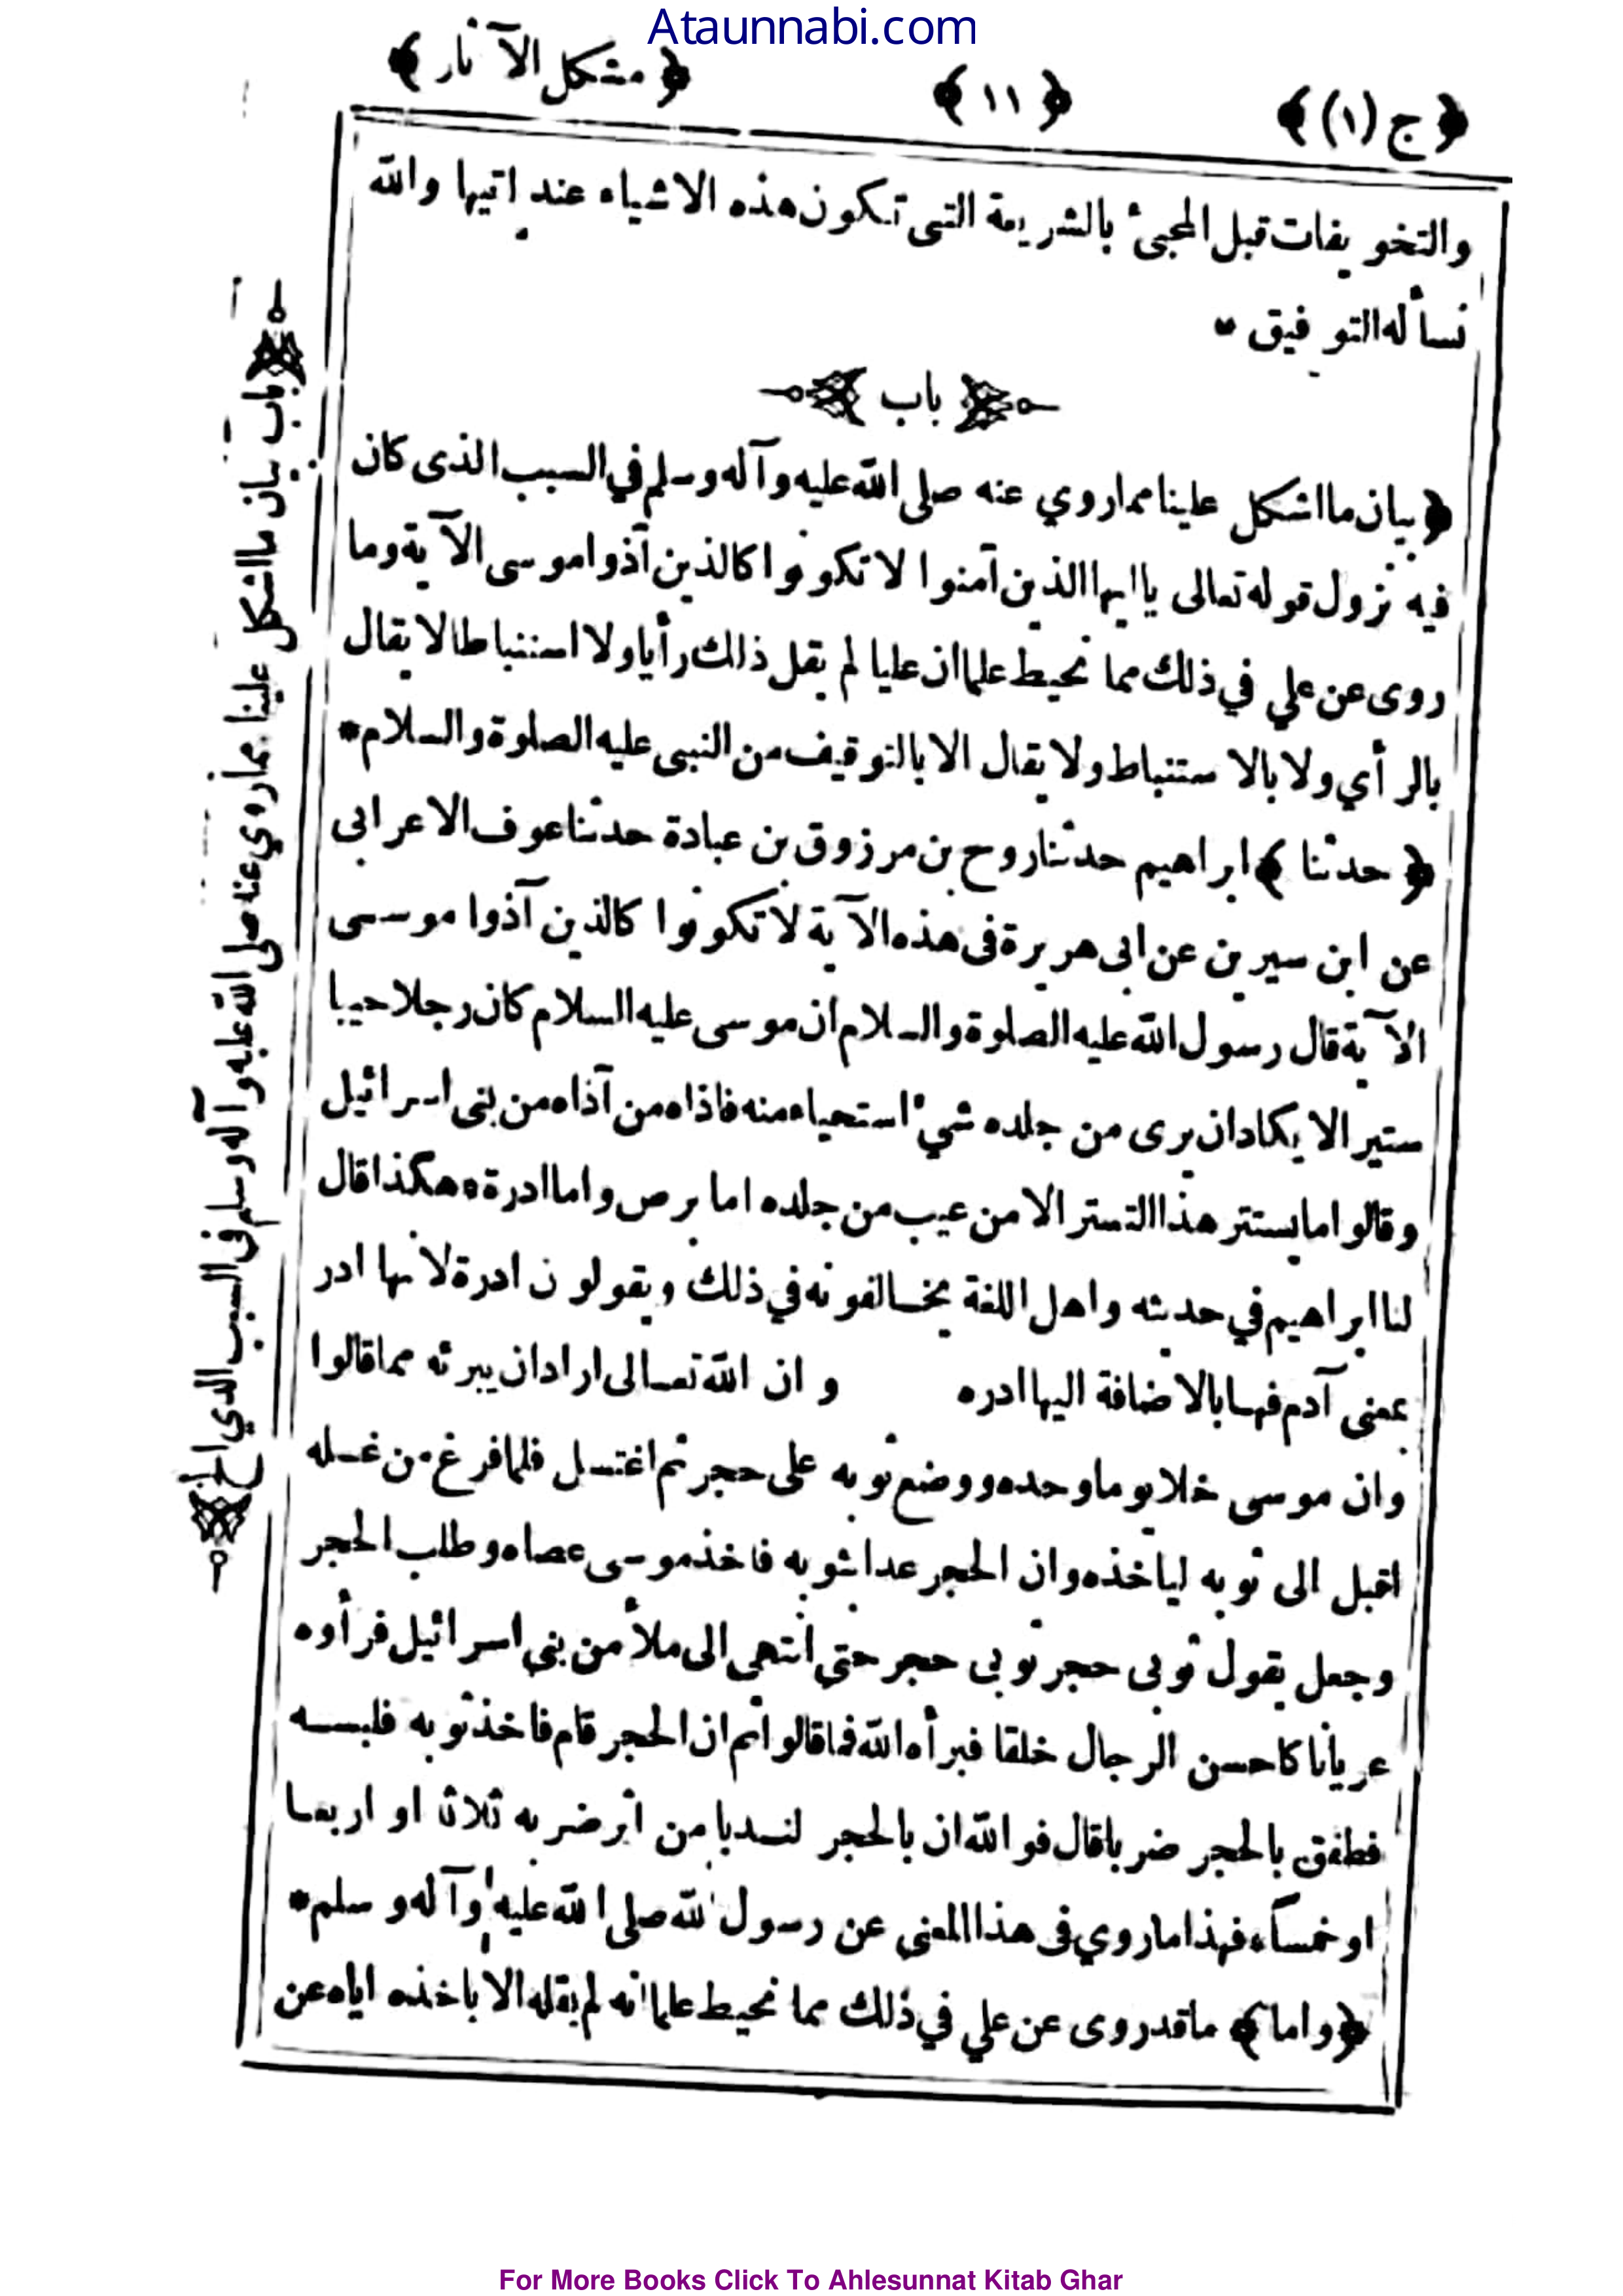 Ataunnabi.com
﴿ ج (١) ﴾ ﴿ ١١ ﴾ ﴿ مشكل الآثار ﴾
والتخويفات قبل المجيئ بالشريعة التى تكون هذه الاشياء عند اتيها والله
نسأله التوفيق *
باب
﴿ بيان ما اشكل علينا مما روي عنه صلى الله عليه وآله وسلم في السبب الذى كان
فيه نزول قوله تعالى يا ايها الذين آمنوا لا تكونوا كالذين آذوا موسى الآية وما
روى عن علي في ذلك مما نحيط علما ان عليا لم يقل ذالك رأيا ولا استنباطا لا يقال
بالرأي ولا بالاستنباط ولا يقال الا بالتوقيف من النبى عليه الصلوة والسلام *
﴿ حدثنا ﴾ ابراهيم حدثنا روح بن مرزوق بن عبادة حدثنا عوف الاعرابى
عن ابن سيرين عن ابى هريرة فى هذه الآية لا تكونوا كالذين آذوا موسى
الآية قال رسول الله عليه الصلوة والسلام ان موسى عليه السلام كان رجلا حييا
ستيرا لا يكاد ان يرى من جلده شيئ استحياء منه فاذاه من آذاه من بنى اسرائيل
وقالوا ما يستتر هذا التستر الا من عيب من جلده اما برص واما ادرة ه هكذا قال
لنا ابراهيم في حديثه واهل اللغة يخالفونه في ذلك ويقولون ادرة لانها ادر
بمعنى آدم فهما بالاضافة اليها ادره وان الله تعالى اراد ان يبرئه مما قالوا
وان موسى خلا يوما وحده ووضع ثوبه على حجر ثم اغتسل فلما فرغ من غسله
اقبل الى ثوبه لياخذه وان الحجر عدا بثوبه فاخذ موسى عصاه وطلب الحجر
وجعل يقول ثوبى حجر ثوبى حجر حتى انتهى الى ملأ من بنى اسرائيل فرأوه
عريانا كاحسن الرجال خلقا فبرأه الله مما قالوا ثم ان الحجر قام فاخذ ثوبه فلبسه
فطفق بالحجر ضربا قال فو الله ان بالحجر لندبا من اثر ضربه ثلاثا او اربعا
او خمسا ء فهذا ما روي فى هذا المعنى عن رسول الله صلى الله عليه وآله وسلم *
﴿ واما ﴾ ما قد روى عن علي في ذلك مما نحيط علما انه لم يقله الا باخذه اياه عن
باب بيان ما اشكل علينا مما روي عنه صلى الله عليه وآله وسلم فى السبب الذي الخ
For More Books Click To Ahlesunnat Kitab Ghar